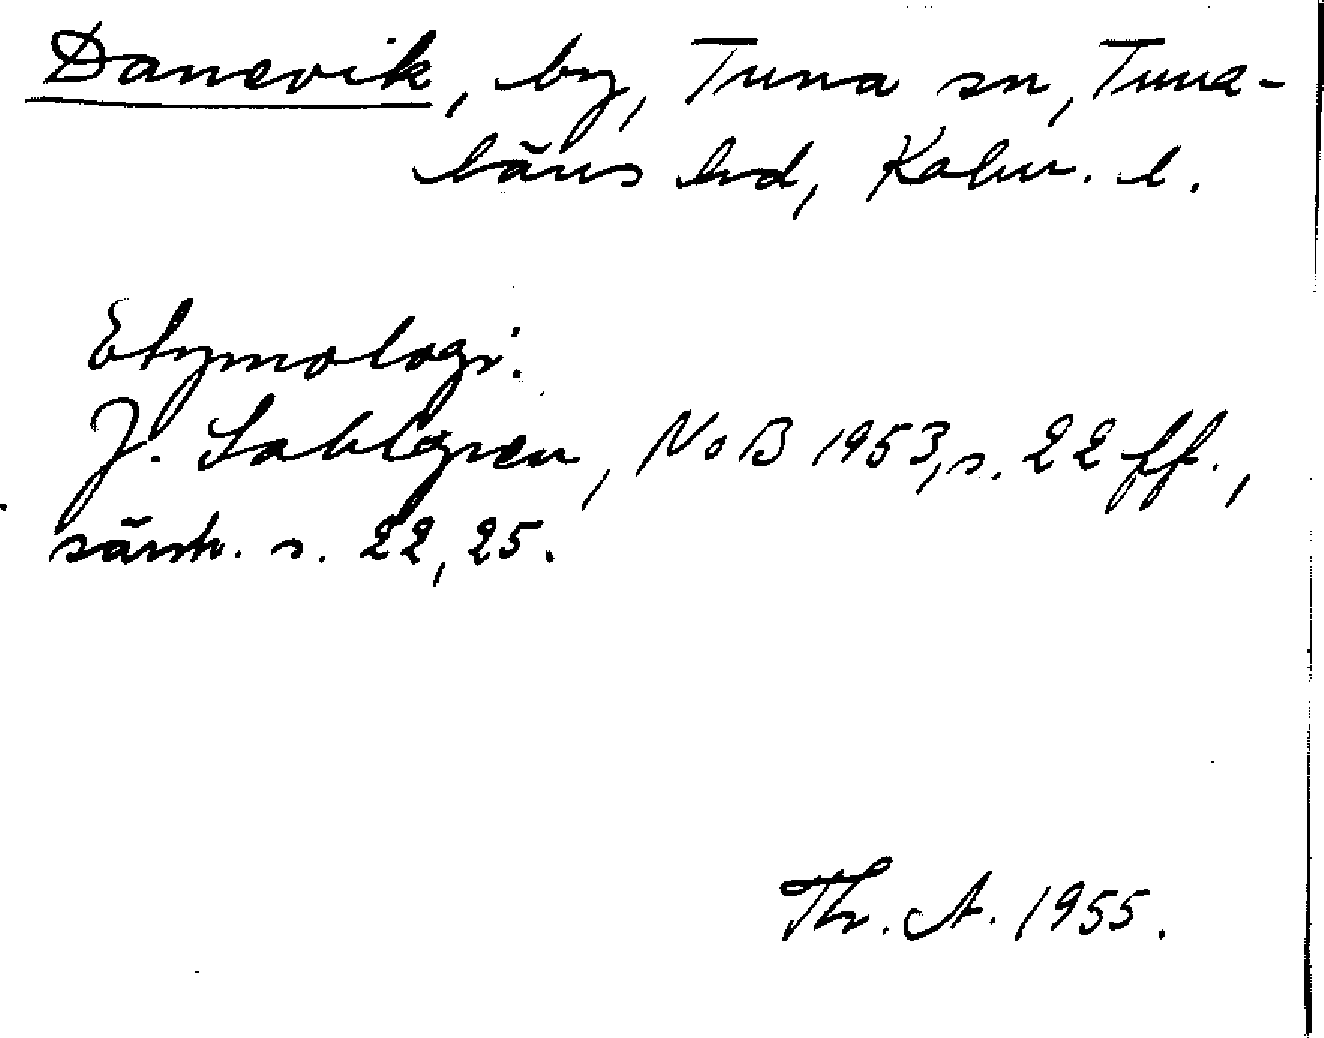 Danevik, by, Tuna sn, Tuna-
läns hd, Kalm. l.
Etymologi.
J. Sahlgren, NoB 1953, s. 22 ff.,
särsk. s. 22, 25.
Th. A. 1955.